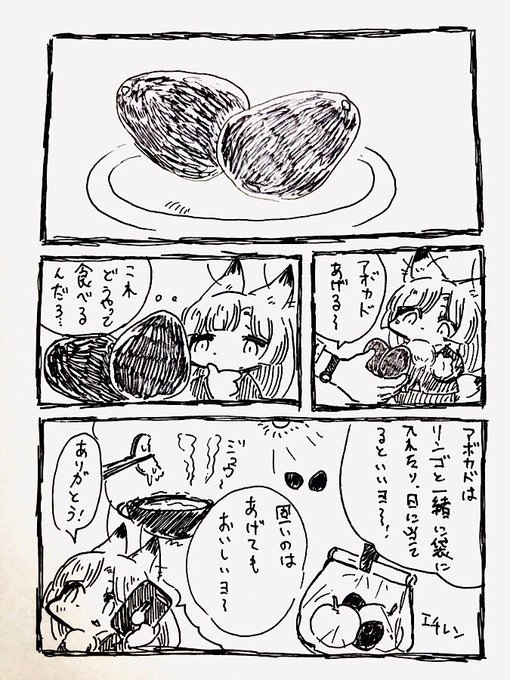 アボカド
あげる〜
これ
どうやって
食べる
んだろ…
アボカドは
リンゴと一緒に袋に
入れたり、日に当て
るといいヨ〜!
エチレン
固いのは
あげても
おいしいヨ〜
ジュワ
ありがとう!